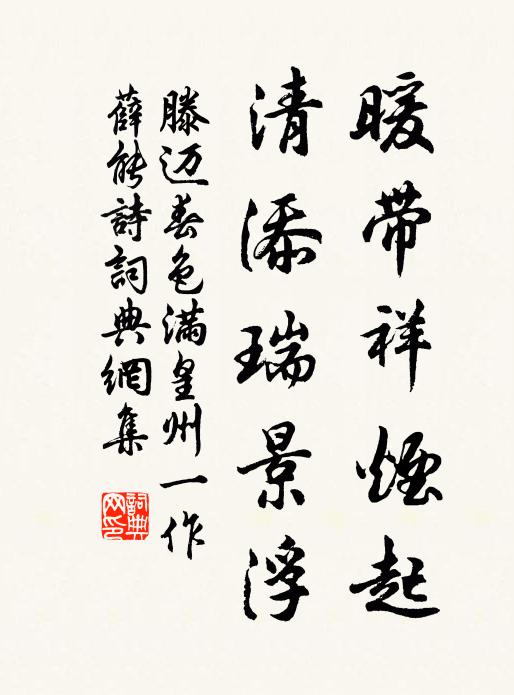 暖带祥煙起
清添瑞景浮
滕迈春色满皇州一作
薛能詩詞典網集
詞典网印